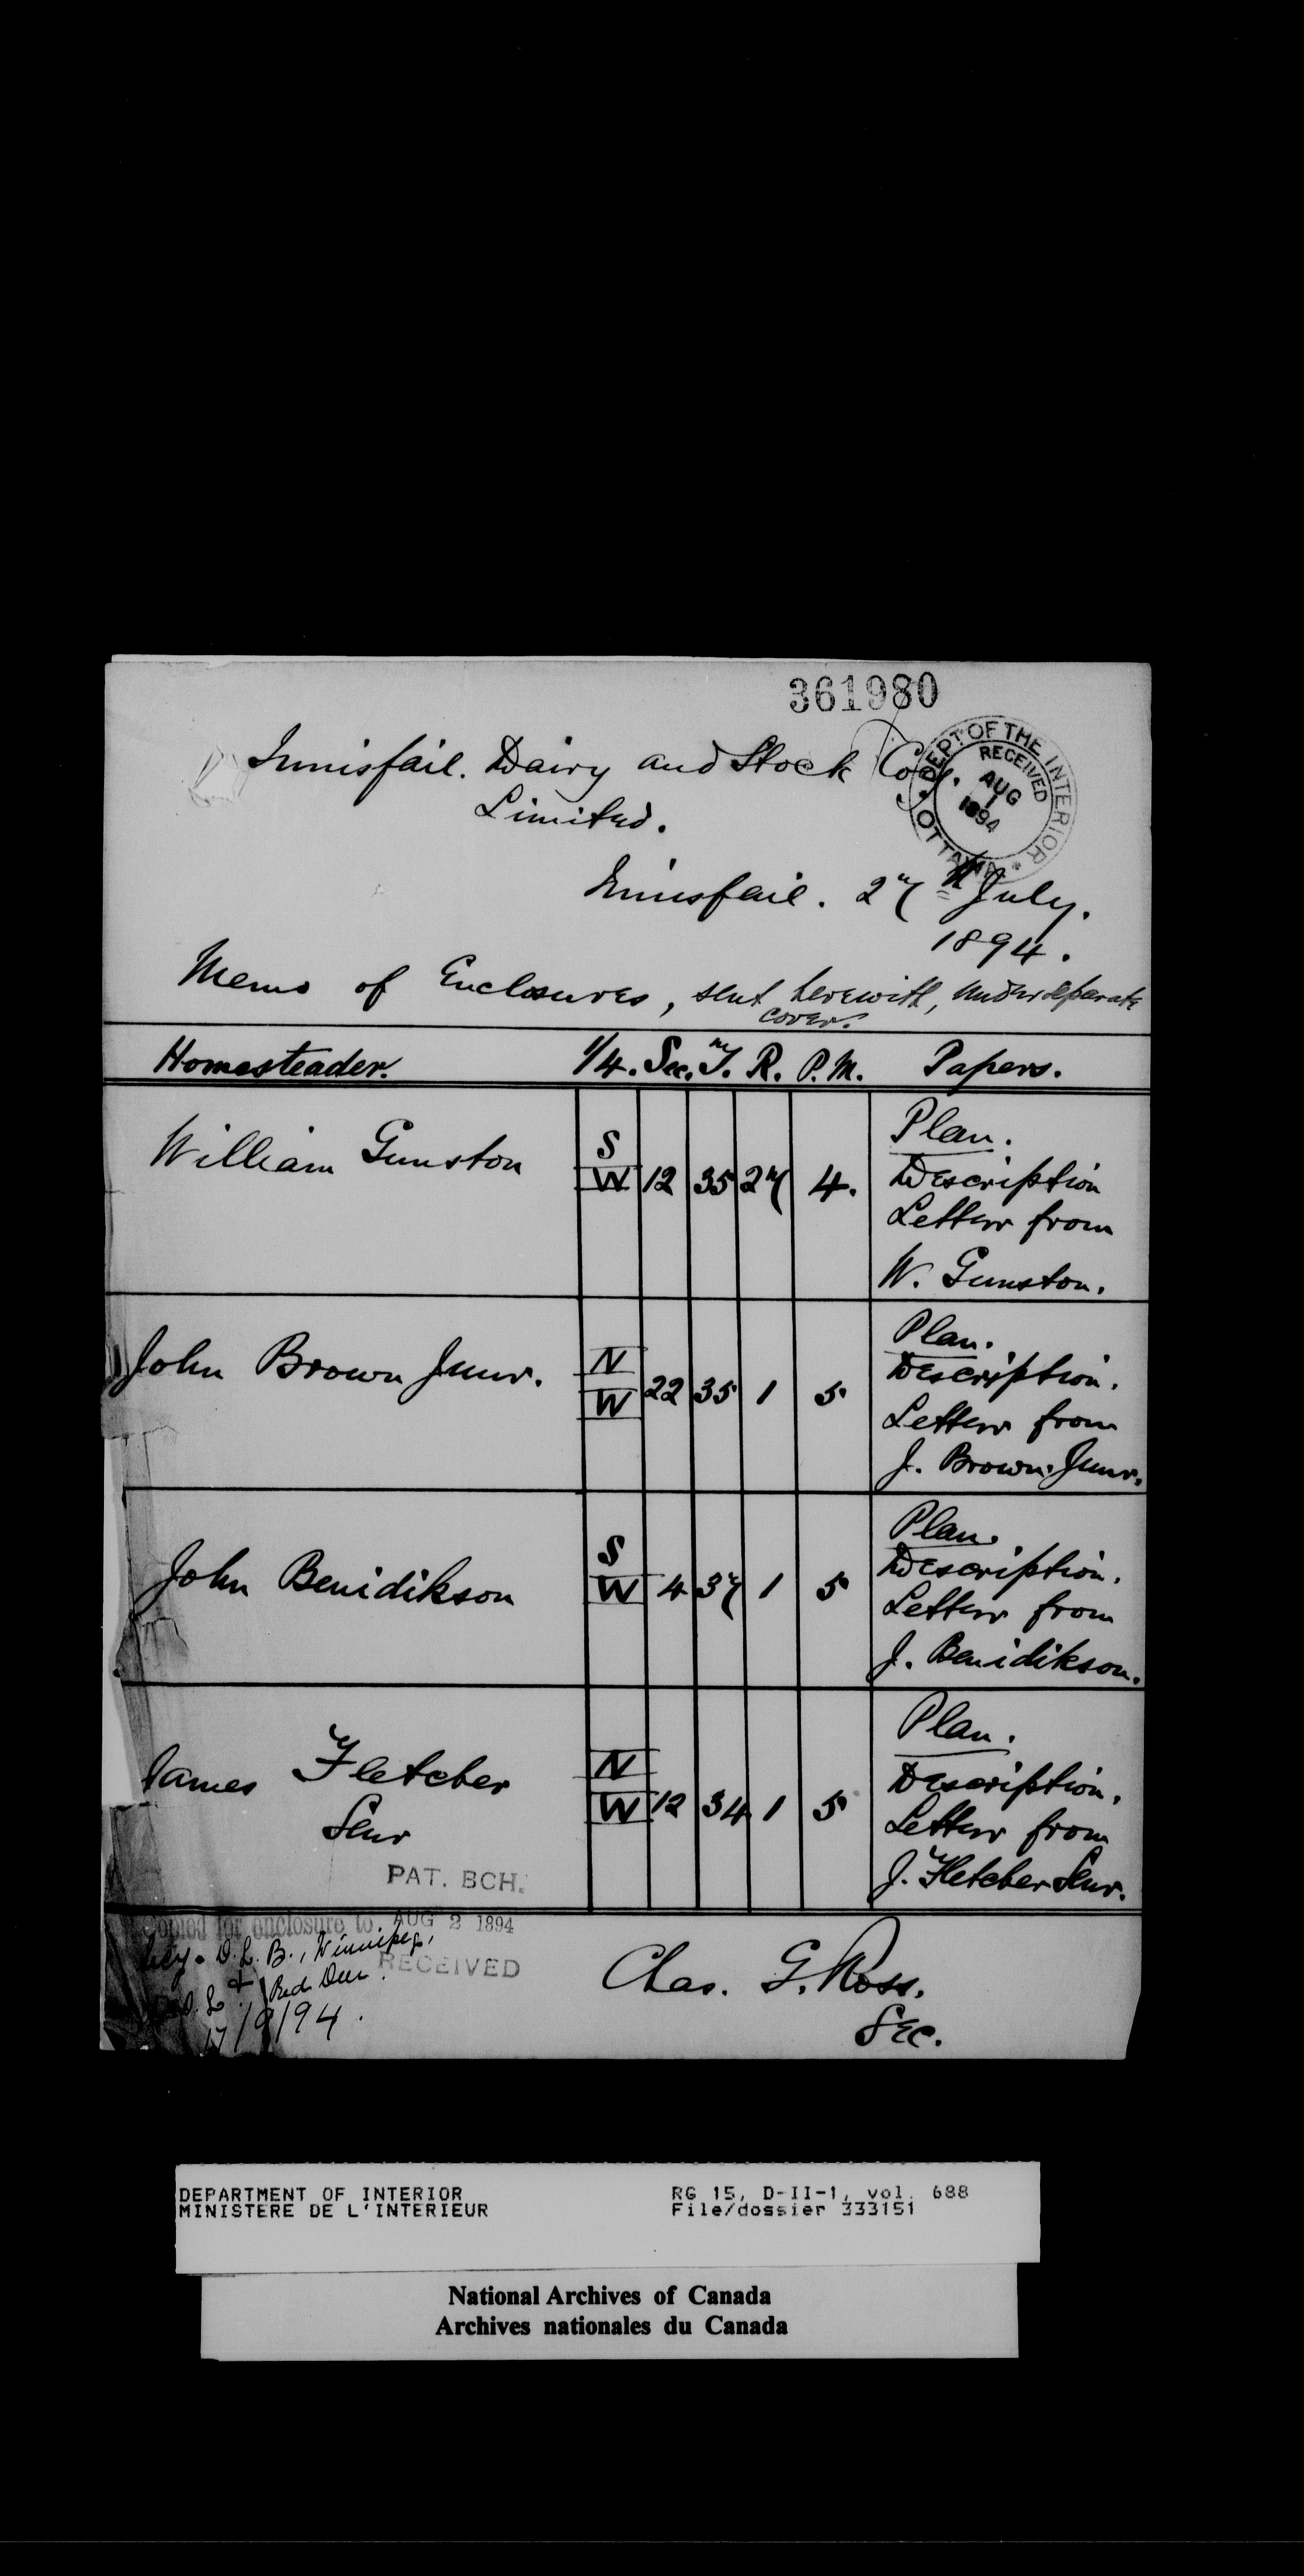 361980
Innisfail. Dairy and Stock Coy.
Limited.
DEPT OF THE INTERIOR * OTTAWA *
RECEIVED
AUG
1
1894
Innisfail. 27th July.
1894.
Memo of Enclosures, sent herewith, under separate
cover.
Homesteader. 1/4. Sec. T. R. P.M. Papers.
William Gunston S W 12 35 27 4. Plan.
Description
Letter from
W. Gunston.
John Brown Junr. N W 22 35 1 5 Plan.
Description.
Letter from
J. Brown Junr.
John Benidikson S W 4 37 1 5 Plan.
Description.
Letter from
J. Benidikson.
James Fletcher N W 12 34 1 5 Plan.
Senr
Description.
Letter from
J. Fletcher Senr.
PAT. BCH.
AUG 2 1894
RECEIVED
Copied for enclosure to
Secy. D.L.B., Winnipeg,
& Red Deer.
17/9/94.
Chas. G. Ross.
Sec.
DEPARTMENT OF INTERIOR
MINISTERE DE L'INTERIEUR
RG 15, D-II-1, vol. 688
File/dossier 333151
National Archives of Canada
Archives nationales du Canada